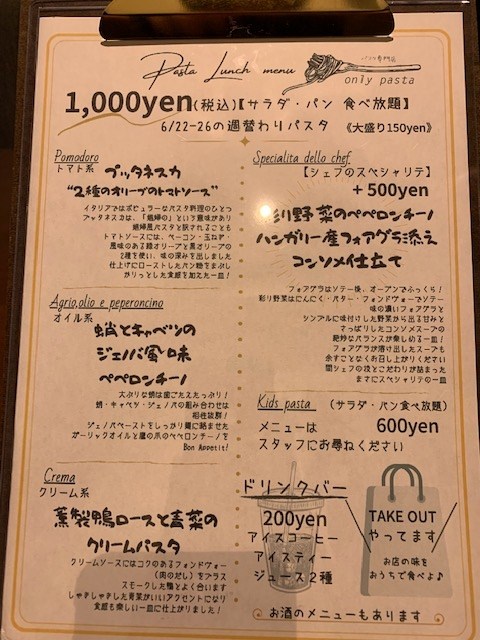 Pasta Lunch menu
only pasta
1,000yen(税込)【サラダ・パン 食べ放題】
6/22-26の週替わりパスタ 《大盛り150yen》
Pomodoro
トマト系 プッタネスカ
"2種のオリーブのトマトソース"
イタリアではポピュラーなパスタ料理のひとつ
プッタネスカは、「娼婦の」という意味があり
娼婦風パスタと訳されることも
トマトソースには、ベーコン・玉ねぎ・
風味のある緑オリーブと黒オリーブの
2種を使い、味の深みを出しました
仕上げにローストしたパン粉をまぶし
かりっとした食感を加えた一皿！
Agrio,olio e peperoncino
オイル系
蛸とキャベツの
ジェノバ風味
ペペロンチーノ
大ぶりな蛸は歯ごたえたっぷり！
蛸・キャベツ・ジェノバの組み合わせは
相性抜群！
ジェノバペーストをしっかり麺に絡ませた
ガーリックオイルと鷹の爪のペペロンチーノを
Bon Appetit!
Crema
クリーム系
薫製鴨ロースと青菜の
クリームパスタ
クリームソースにはコクのあるフォンドヴォー
(肉のだし)をプラス
スモークした鴨とよく合います
しゃきしゃきした青菜がいいアクセントになり
食感も楽しい一皿に仕上がりました！
Specialita dello chef
【シェフのスペシャリテ】
＋500yen
彩り野菜のペペロンチーノ
ハンガリー産フォアグラ添え
コンソメ仕立て
フォアグラはソテー後、オーブンでふっくら！
彩り野菜はにんにく・バター・フォンドヴォーでソテー
味の濃いフォアグラと
シンプルに味付けした野菜から出る甘みと
さっぱりしたコンソメスープの
絶妙なバランスが楽しめる一皿！
フォアグラが溶け出したスープも
余すことなくお召し上がりください
間シェフの技とこだわりが詰まった
まさにスペシャリテの一皿
Kids pasta （サラダ・パン食べ放題）
メニューは 600yen
スタッフにお尋ねください
ドリンクバー
200yen
アイスコーヒー
アイスティー
ジュース2種
TAKE OUT
やってます
お店の味を
おうちで食べよ♪
お酒のメニューもあります